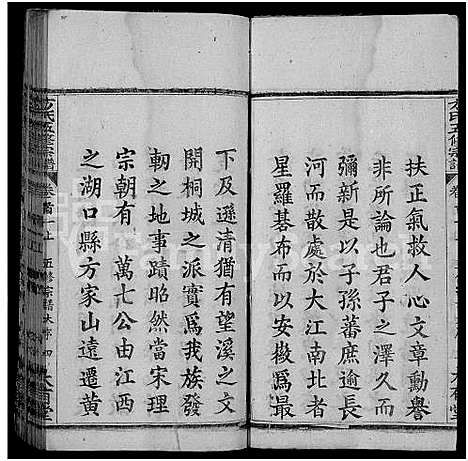 扶正氣救人心文章勳譽
非所論也君子之澤久而
彌新是以子孫蕃庶逾長
河而散處於大江南北者
星羅碁布而以安徽爲最
下及遜清猶有望溪之文
開桐城之派實爲我族發
軔之地事蹟昭然當宋理
宗朝有 萬七公由江西
之湖口縣方家山遠遷黄
方氏五修宗譜
卷首上 五修宗譜